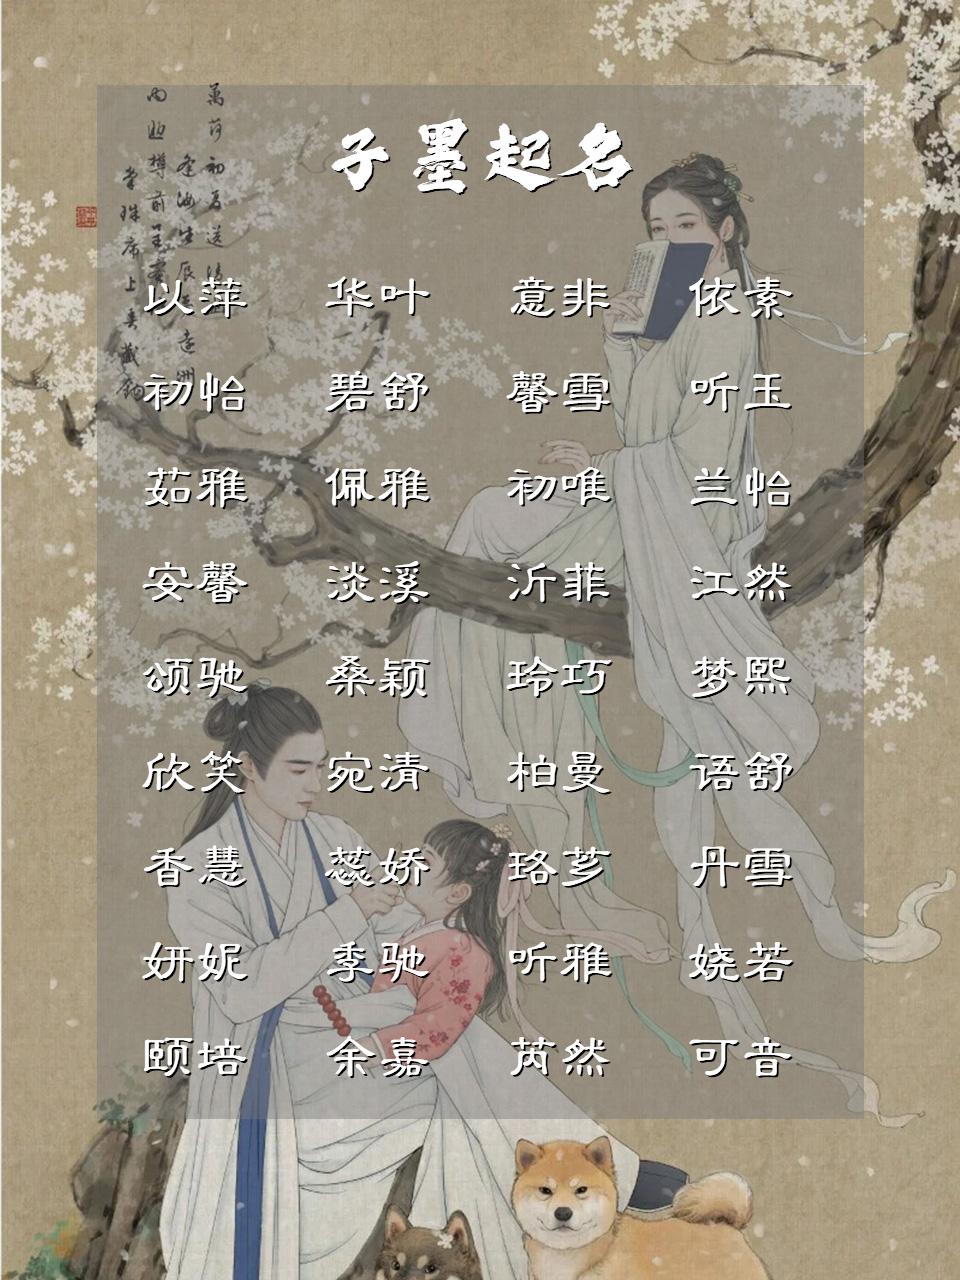 子墨起名
以萍 华叶 意非 依素
初怡 碧舒 馨雪 听玉
茹雅 佩雅 初唯 兰怡
安馨 淡溪 沂菲 江然
颂驰 桑颖 玲巧 梦熙
欣笑 宛清 柏曼 语舒
香慧 蕊娇 珞芗 丹雪
妍妮 季驰 听雅 娆若
颐培 余嘉 芮然 可音